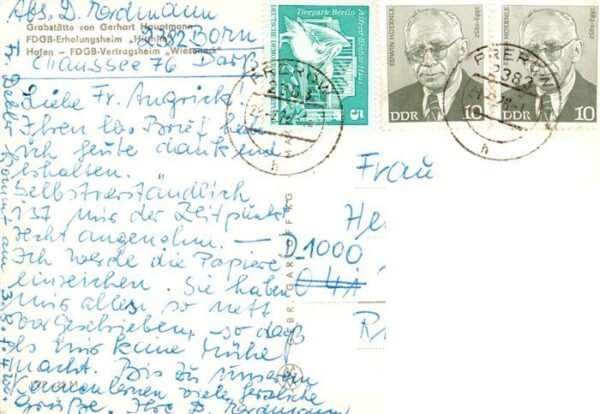 Abs. D. Nordmann
2382 BORN
Chaussee 76 Darß
Grabstätte von Gerhart Hauptmann
FDGB-Erholungsheim
Hafen – FDGB-Vertragsheim „Wieseneck"
Liebe Fr. Angrick!
Ihren lb. Brief habe
ich heute dankend
erhalten.
Selbstverständlich
ist mir der Zeitpunkt
recht angenehm. —
Ich werde die Papiere
einreichen. Sie haben
mir alles so nett
vorgeschrieben, so daß
es mir keine Mühe
macht. Bis zu unserem
Kennenlernen viele herzliche
Grüße. Ihre D. Nordmann
Fr. kommt am 3.8.
Tierpark Berlin
Alfred-Brehm-Haus
DEUTSCHE DEMOKRATISCHE
5
EDWIN HOERNLE
1883-1952
DDR 10
PREROW
2383
h
EDWIN HOERNLE
1883-1952
DDR 10
PREROW
2383
h
Frau
He
D_1000
041
R
GEBR. GARLOFF KG